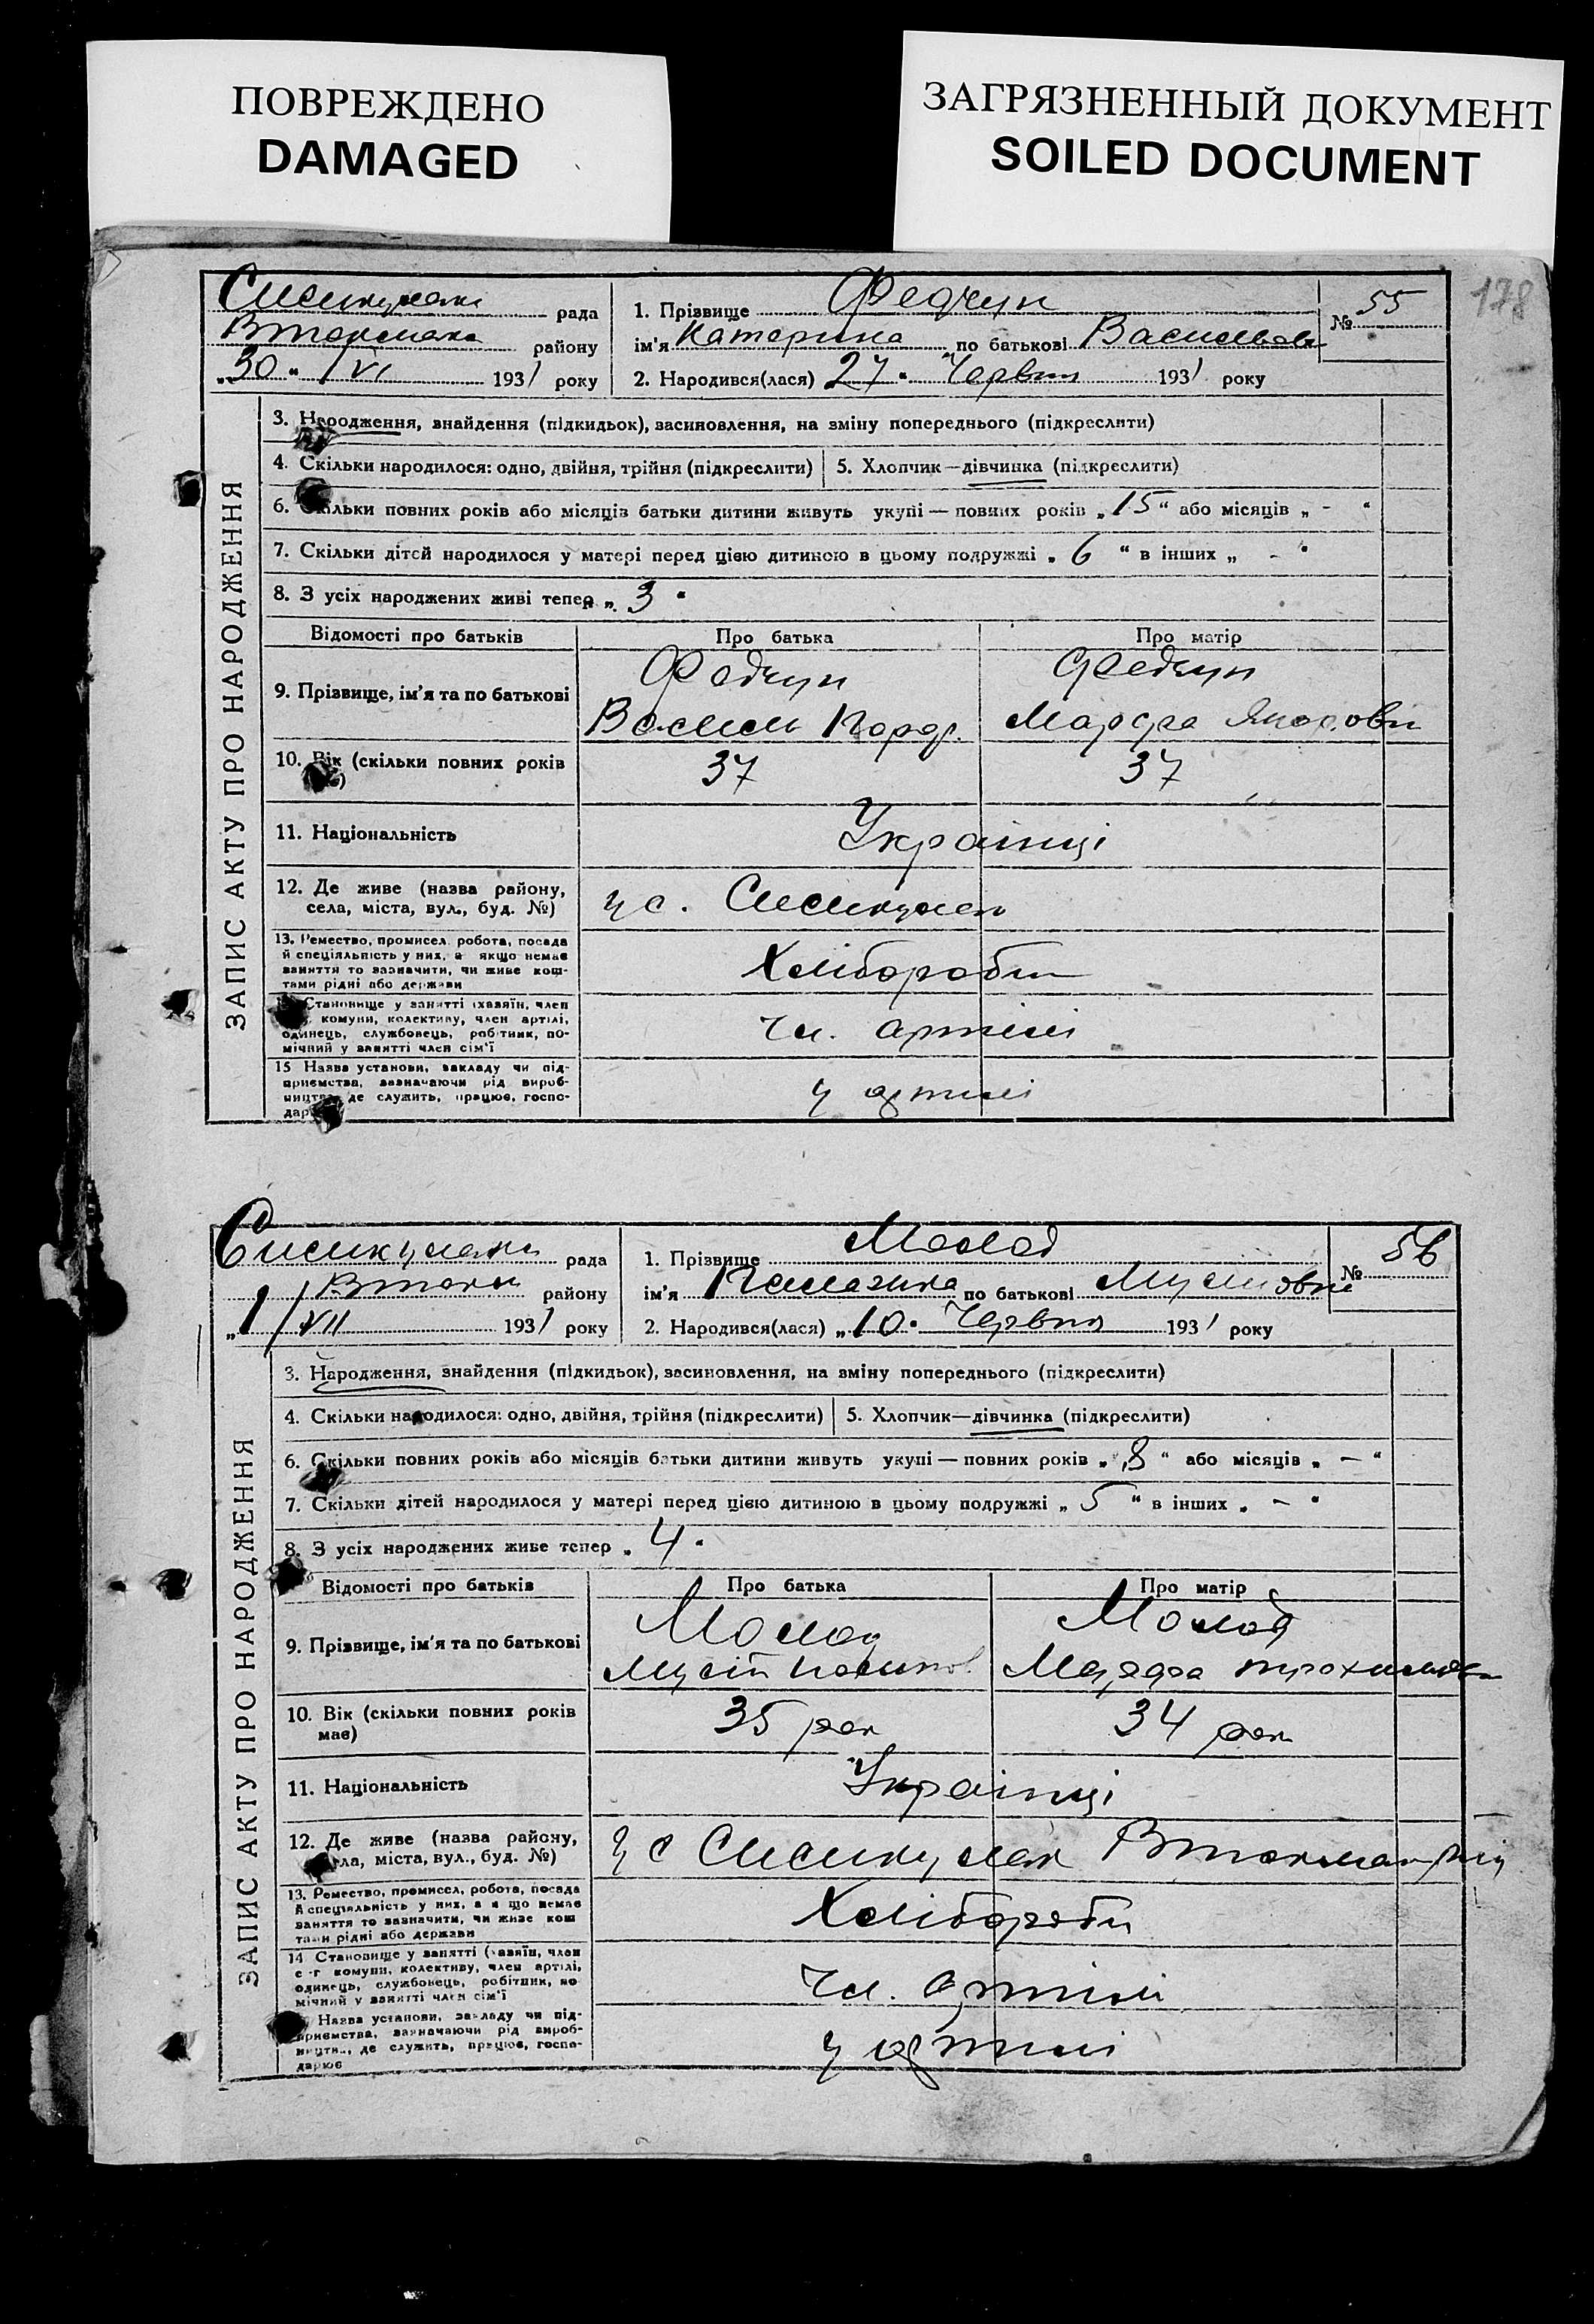 ПОВРЕЖДЕНО
DAMAGED
ЗАГРЯЗНЕННЫЙ ДОКУМЕНТ
SOILED DOCUMENT
178
рада
району
"30" VI 1931 року
1. Прізвище Федчун
ім'я Катерина по батькові Васильовн
№ 55
2. Народився(лася) 27 Червня 1931 року
ЗАПИС АКТУ ПРО НАРОДЖЕННЯ
3. Народження, знайдення (підкидьок), засиновлення, на зміну попереднього (підкреслити)
4. Скільки народилося: одно, двійня, трійня (підкреслити) 5. Хлопчик—дівчинка (підкреслити)
6. Скільки повних років або місяців батьки дитини живуть укупі — повних років „15“ або місяців „ - “
7. Скільки дітей народилося у матері перед цією дитиною в цьому подружжі „6“ в інших „ - “
8. З усіх народжених живі тепер „3“
Відомості про батьків Про батька Про матір
9. Прізвище, ім'я та по батькові
Федчун Федчун
Василь Марфа
10. Вік (скільки повних років
37 37
11. Національність Українці
12. Де живе (назва району,
села, міста, вул., буд. №)
у с.
13. Ремество, промисел, робота, посада
й спеціяльність у них, а якщо немає
заняття то зазначити, чи живе кош-
тами рідні або держави
Хлібороби
Становище у занятті (хазяїн, член
комуни, колективу, член артілі,
одинець, службовець, робітник, по-
мічний у занятті член сім'ї
Чл. артілі
15 Назва установи, закладу чи під-
приємства, зазначаючи рід вироб-
ництва, де служить, працює, госпо-
у артілі
рада
району
„1/VII 1931 року
1. Прізвище Молод
ім'я по батькові Мусіовн
№ 56
2. Народився(лася) „10" Червня 1931 року
ЗАПИС АКТУ ПРО НАРОДЖЕННЯ
3. Народження, знайдення (підкидьок), засиновлення, на зміну попереднього (підкреслити)
4. Скільки народилося: одно, двійня, трійня (підкреслити) 5. Хлопчик—дівчинка (підкреслити)
6. Скільки повних років або місяців батьки дитини живуть укупі — повних років „8“ або місяців „ — “
7. Скільки дітей народилося у матері перед цією дитиною в цьому подружжі „5“ в інших „ - “
8. З усіх народжених живе тепер „4“
Відомості про батьків Про батька Про матір
9. Прізвище, ім'я та по батькові
Молод Молод
Мусій Марфа Трохимовн
10. Вік (скільки повних років
має)
35 рок 34 рок
11. Національність Українці
12. Де живе (назва району,
села, міста, вул., буд. №)
у с
13. Ремество, промисел, робота, посада
й спеціяльність у них, а якщо немає
заняття то зазначити, чи живе кош
тами рідні або держави
Хлібороби
14 Становище у занятті (хазяїн, член
с-г комуни, колективу, член артілі,
одинець, службовець, робітник, по
мічний у занятті член сім'ї
Чл. артілі
Назва установи, закладу чи під-
приємства, зазначаючи рід вироб-
ництва, де служить, працює, госпо-
дарює
у артілі